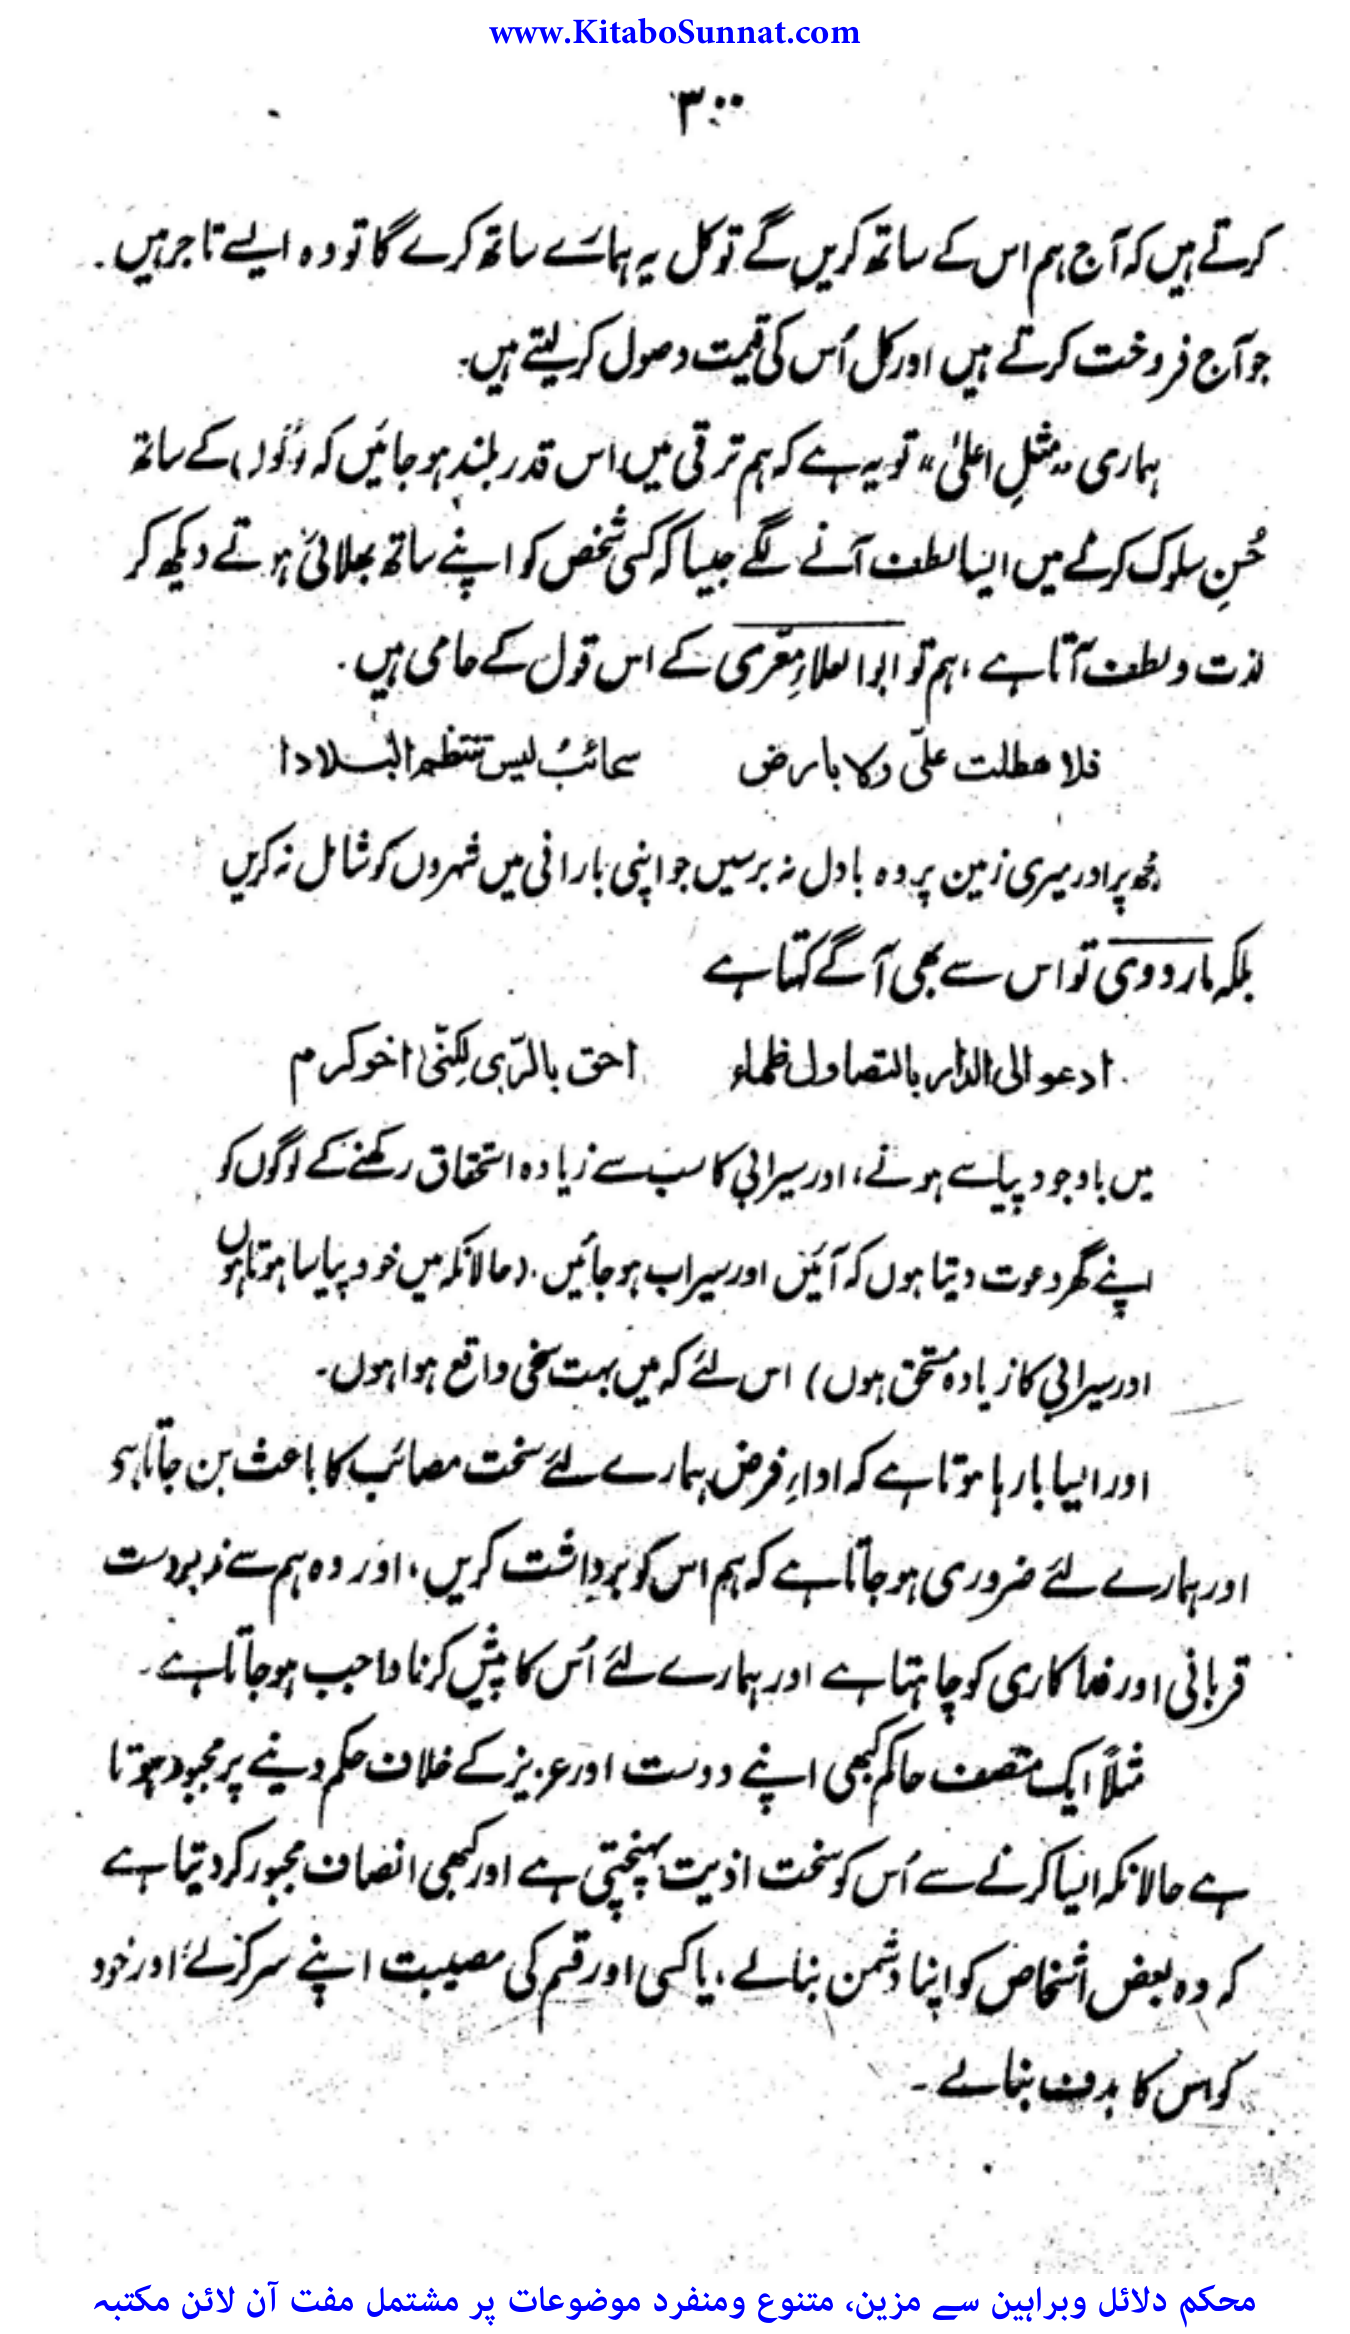 www.KitaboSunnat.com
۳۰۰
کرتے ہیں کہ آج ہم اس کے ساتھ کریں گے تو کل یہ ہمارے ساتھ کرے گا تو وہ ایسے تاجر ہیں۔
جو آج فروخت کرتے ہیں اور کل اُس کی قیمت وصول کر لیتے ہیں۔
ہماری "مثلِ اعلیٰ" تو یہ ہے کہ ہم ترقی میں اس قدر بلند ہو جائیں کہ لوگوں کے ساتھ
حُسنِ سلوک کرنے میں ایسا لطف آنے لگے جیسا کہ کسی شخص کو اپنے ساتھ بھلائی ہوتے دیکھ کر
لذت و لطف آتا ہے، ہم تو ابوالعلاءِ معّری کے اس قول کے حامی ہیں۔
فلا هطلت علیّ ولا بارض سحائبُ لیس تنتظم البلادا
مجھ پر اور میری زمین پر وہ بادل نہ برسیں جو اپنی بارانی میں شہروں کو شامل نہ کریں
بلکہ بارودی تو اس سے بھی آگے کہتا ہے
ادعو الی الدار بالتصاول ظماء احق بالرّی لکِنّی اخو کرم
میں باوجود پیاسے ہونے، اور سیرابی کا سب سے زیادہ استحقاق رکھنے کے لوگوں کو
اپنے گھر دعوت دیتا ہوں کہ آئیں اور سیراب ہو جائیں۔ (حالانکہ میں خود پیاسا ہوتا ہوں
اور سیرابی کا زیادہ مستحق ہوں) اس لئے کہ میں بہت سخی واقع ہوا ہوں۔
اور ایسا بارہا ہوتا ہے کہ اداءِ فرض ہمارے لئے سخت مصائب کا باعث بن جاتا ہے
اور ہمارے لئے ضروری ہو جاتا ہے کہ ہم اس کو برداشت کریں، اور وہ ہم سے زبردست
قربانی اور فداکاری کو چاہتا ہے اور ہمارے لئے اُس کا پیش کرنا واجب ہو جاتا ہے۔
مثلاً ایک منصف حاکم کبھی اپنے دوست اور عزیز کے خلاف حکم دینے پر مجبور ہوتا
ہے حالانکہ ایسا کرنے سے اُس کو سخت اذیت پہنچتی ہے اور کبھی انصاف مجبور کر دیتا ہے
کہ وہ بعض اشخاص کو اپنا دشمن بنالے، یا کسی اور قسم کی مصیبت اپنے سر کرلے اور خود
کو اس کا ہدف بنالے۔
محکم دلائل وبراہین سے مزین، متنوع ومنفرد موضوعات پر مشتمل مفت آن لائن مکتبہ